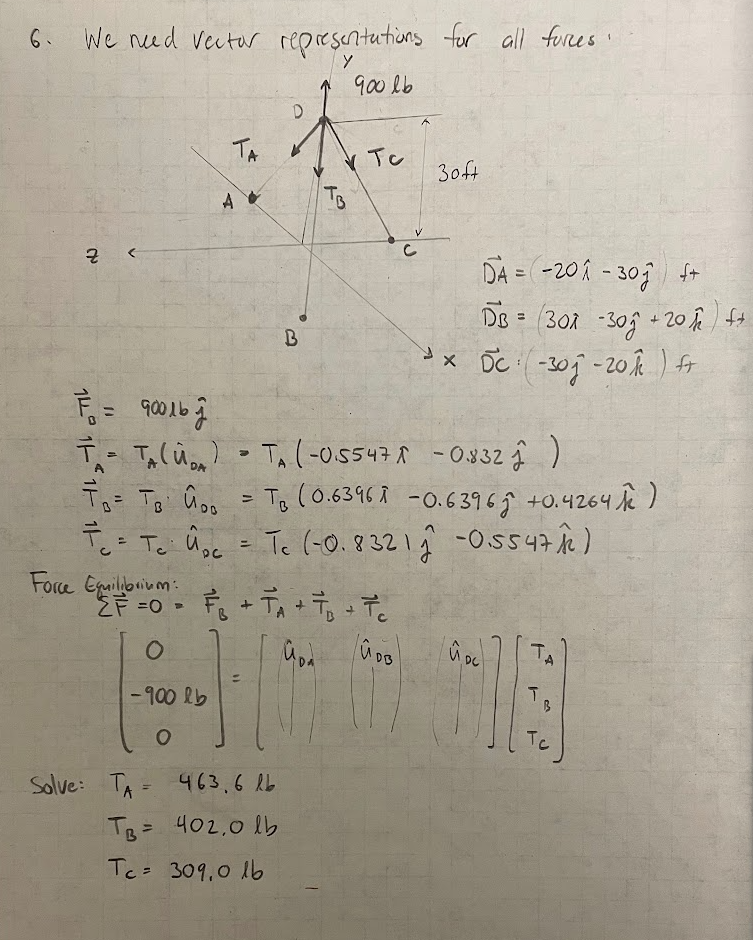 6. We need vector representations for all forces:
Y
900 lb
D
T_A
T_C
30ft
A
T_B
Z
C
B
X
D⃗A = (-20î - 30ĵ) ft
D⃗B = (30î -30ĵ +20k̂) ft
D⃗C : (-30ĵ -20k̂) ft
F⃗_B = 900 lb ĵ
T⃗_A = T_A(û_DA) = T_A(-0.5547 î - 0.832 ĵ )
T⃗_B = T_B · û_DB = T_B (0.6396î -0.6396ĵ +0.4264k̂)
T⃗_C = T_C · û_DC = T_C (-0.8321ĵ -0.5547k̂)
Force Equilibrium:
ΣF⃗ = 0 = F⃗_B + T⃗_A + T⃗_B + T⃗_C
[0 -900 lb 0] = [(û_DA) (û_DB) (û_DC)] [T_A T_B T_C]
Solve: T_A = 463.6 lb
T_B = 402.0 lb
T_C = 309.0 lb